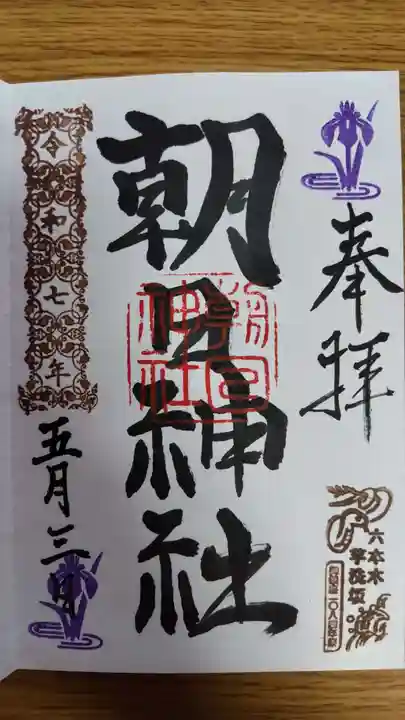 奉拝
六本木
芋洗坂
朝日神社
朝日神社
令和七年
五月三日